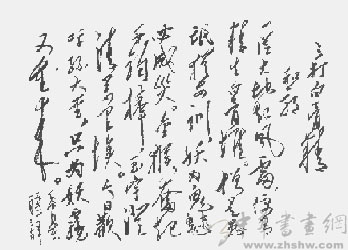 三打白骨精
一从大地起风雷便有
精生白骨堆僧是愚
氓犹可训妖为鬼蜮
必成灾金猴奋起
千钧棒玉宇澄
清万里埃今日欢
呼孙大圣只缘妖雾
又重来
書畫網
www.zhshw.com